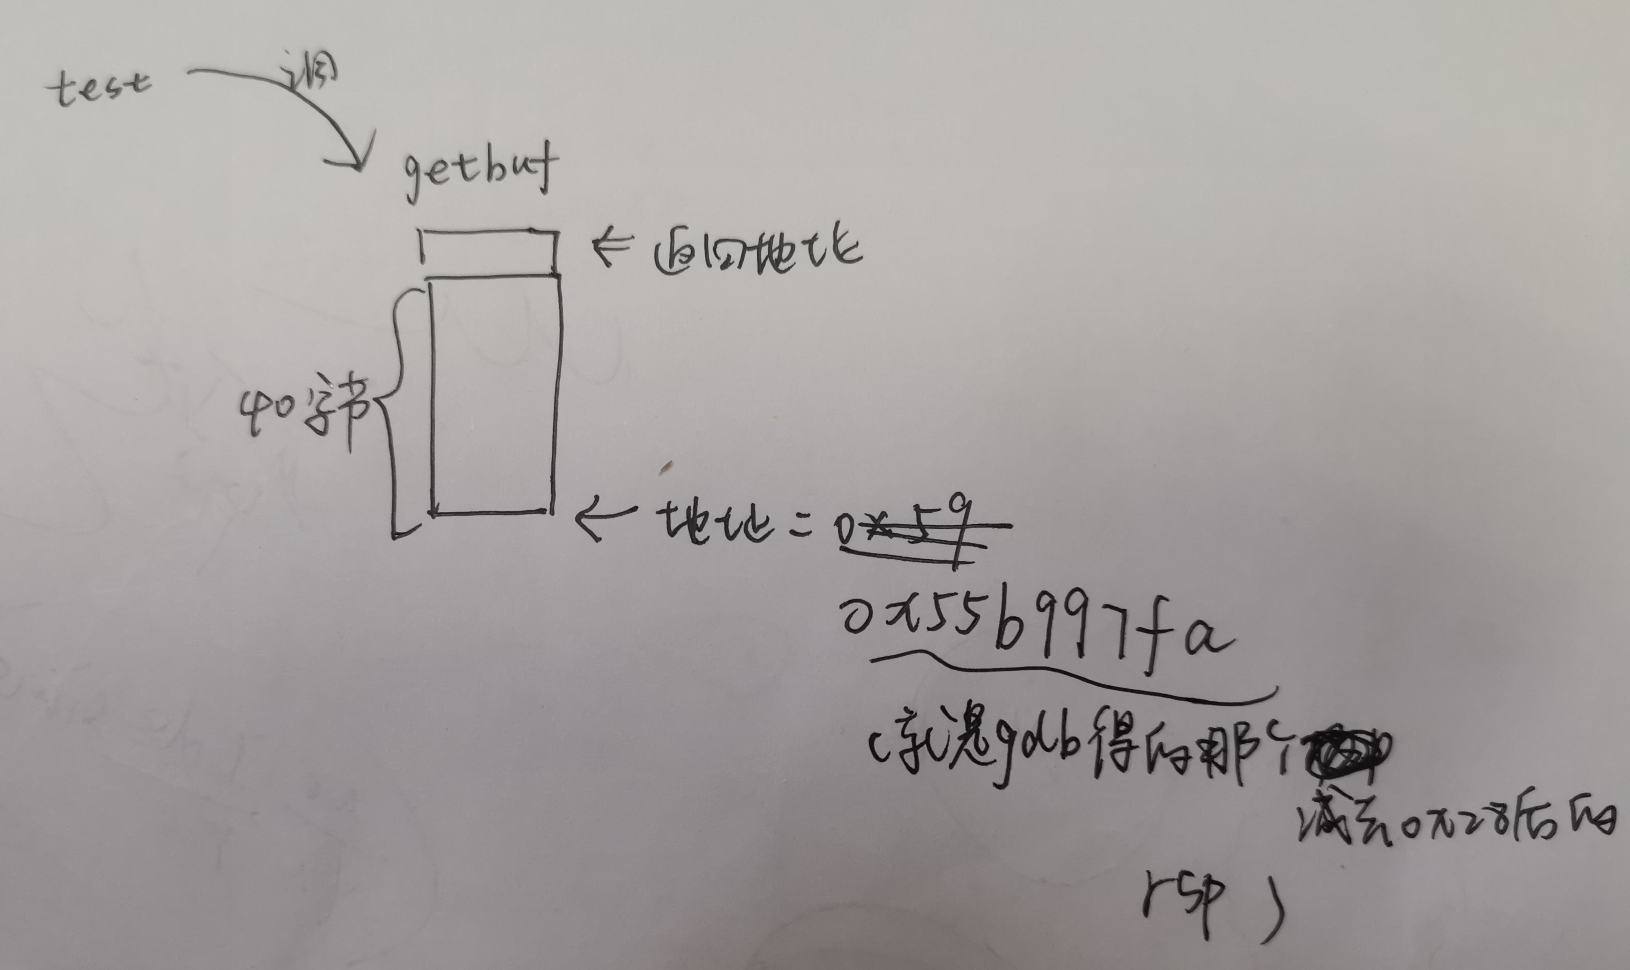 test 调
getbuf
← 返回地址
40字节
← 地址 = 0x59
0x55b997fa
(就是gdb得的那个
减去0x28后的
rsp )